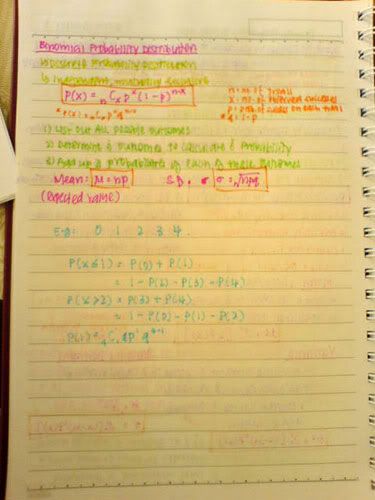 Binomial Probability Distribution
a) Discrete probability distribution
b) independent, mutually exclusive
P(x) = nCx p^x (1-p)^n-x
n = no. of trials
x = no. of
p = prob. of success on each trial
* q = 1-p
* P(x) = nCx p^x q^n-x
1) List out all possible outcomes
2) Determine & outcomes to calculate & probability
3) Add up & probabilities of each of these outcomes
Mean: μ = np S.D. σ σ = √npq
(Expected value)
E.g: 0 1 2 3 4
P(x≤1) = P(0) + P(1)
= 1 - P(2) - P(3) - P(4)
P(x>2) = P(3) + P(4)
= 1 - P(0) - P(1) - P(2)
P(1) = 4C1 p^1 q^4-1